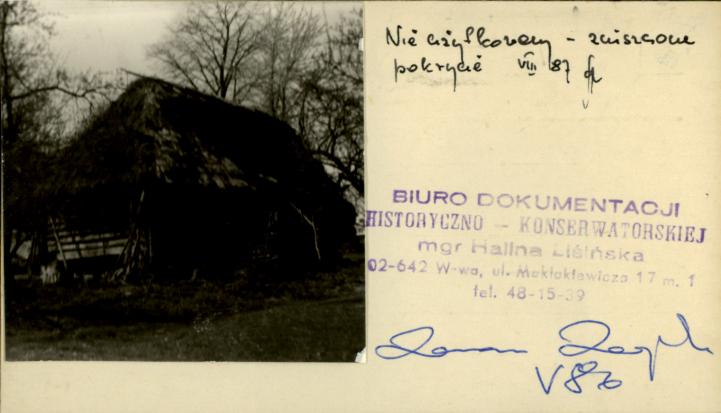 Nie użytkowany - zniszczone
pokrycie VIII 87
BIURO DOKUMENTACJI
HISTORYCZNO - KONSERWATORSKIEJ
mgr Halina Lisińska
02-642 W-wa, ul. Makłakiewicza 17 m. 1
tel. 48-15-39
V 86